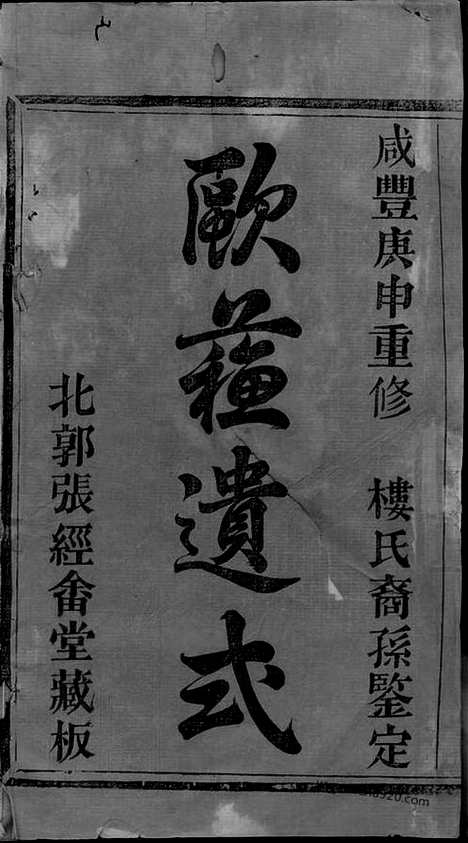 咸豐庚申重修 樓氏裔孫鑒定
歐蘓遺式
北郭張經畬堂藏板